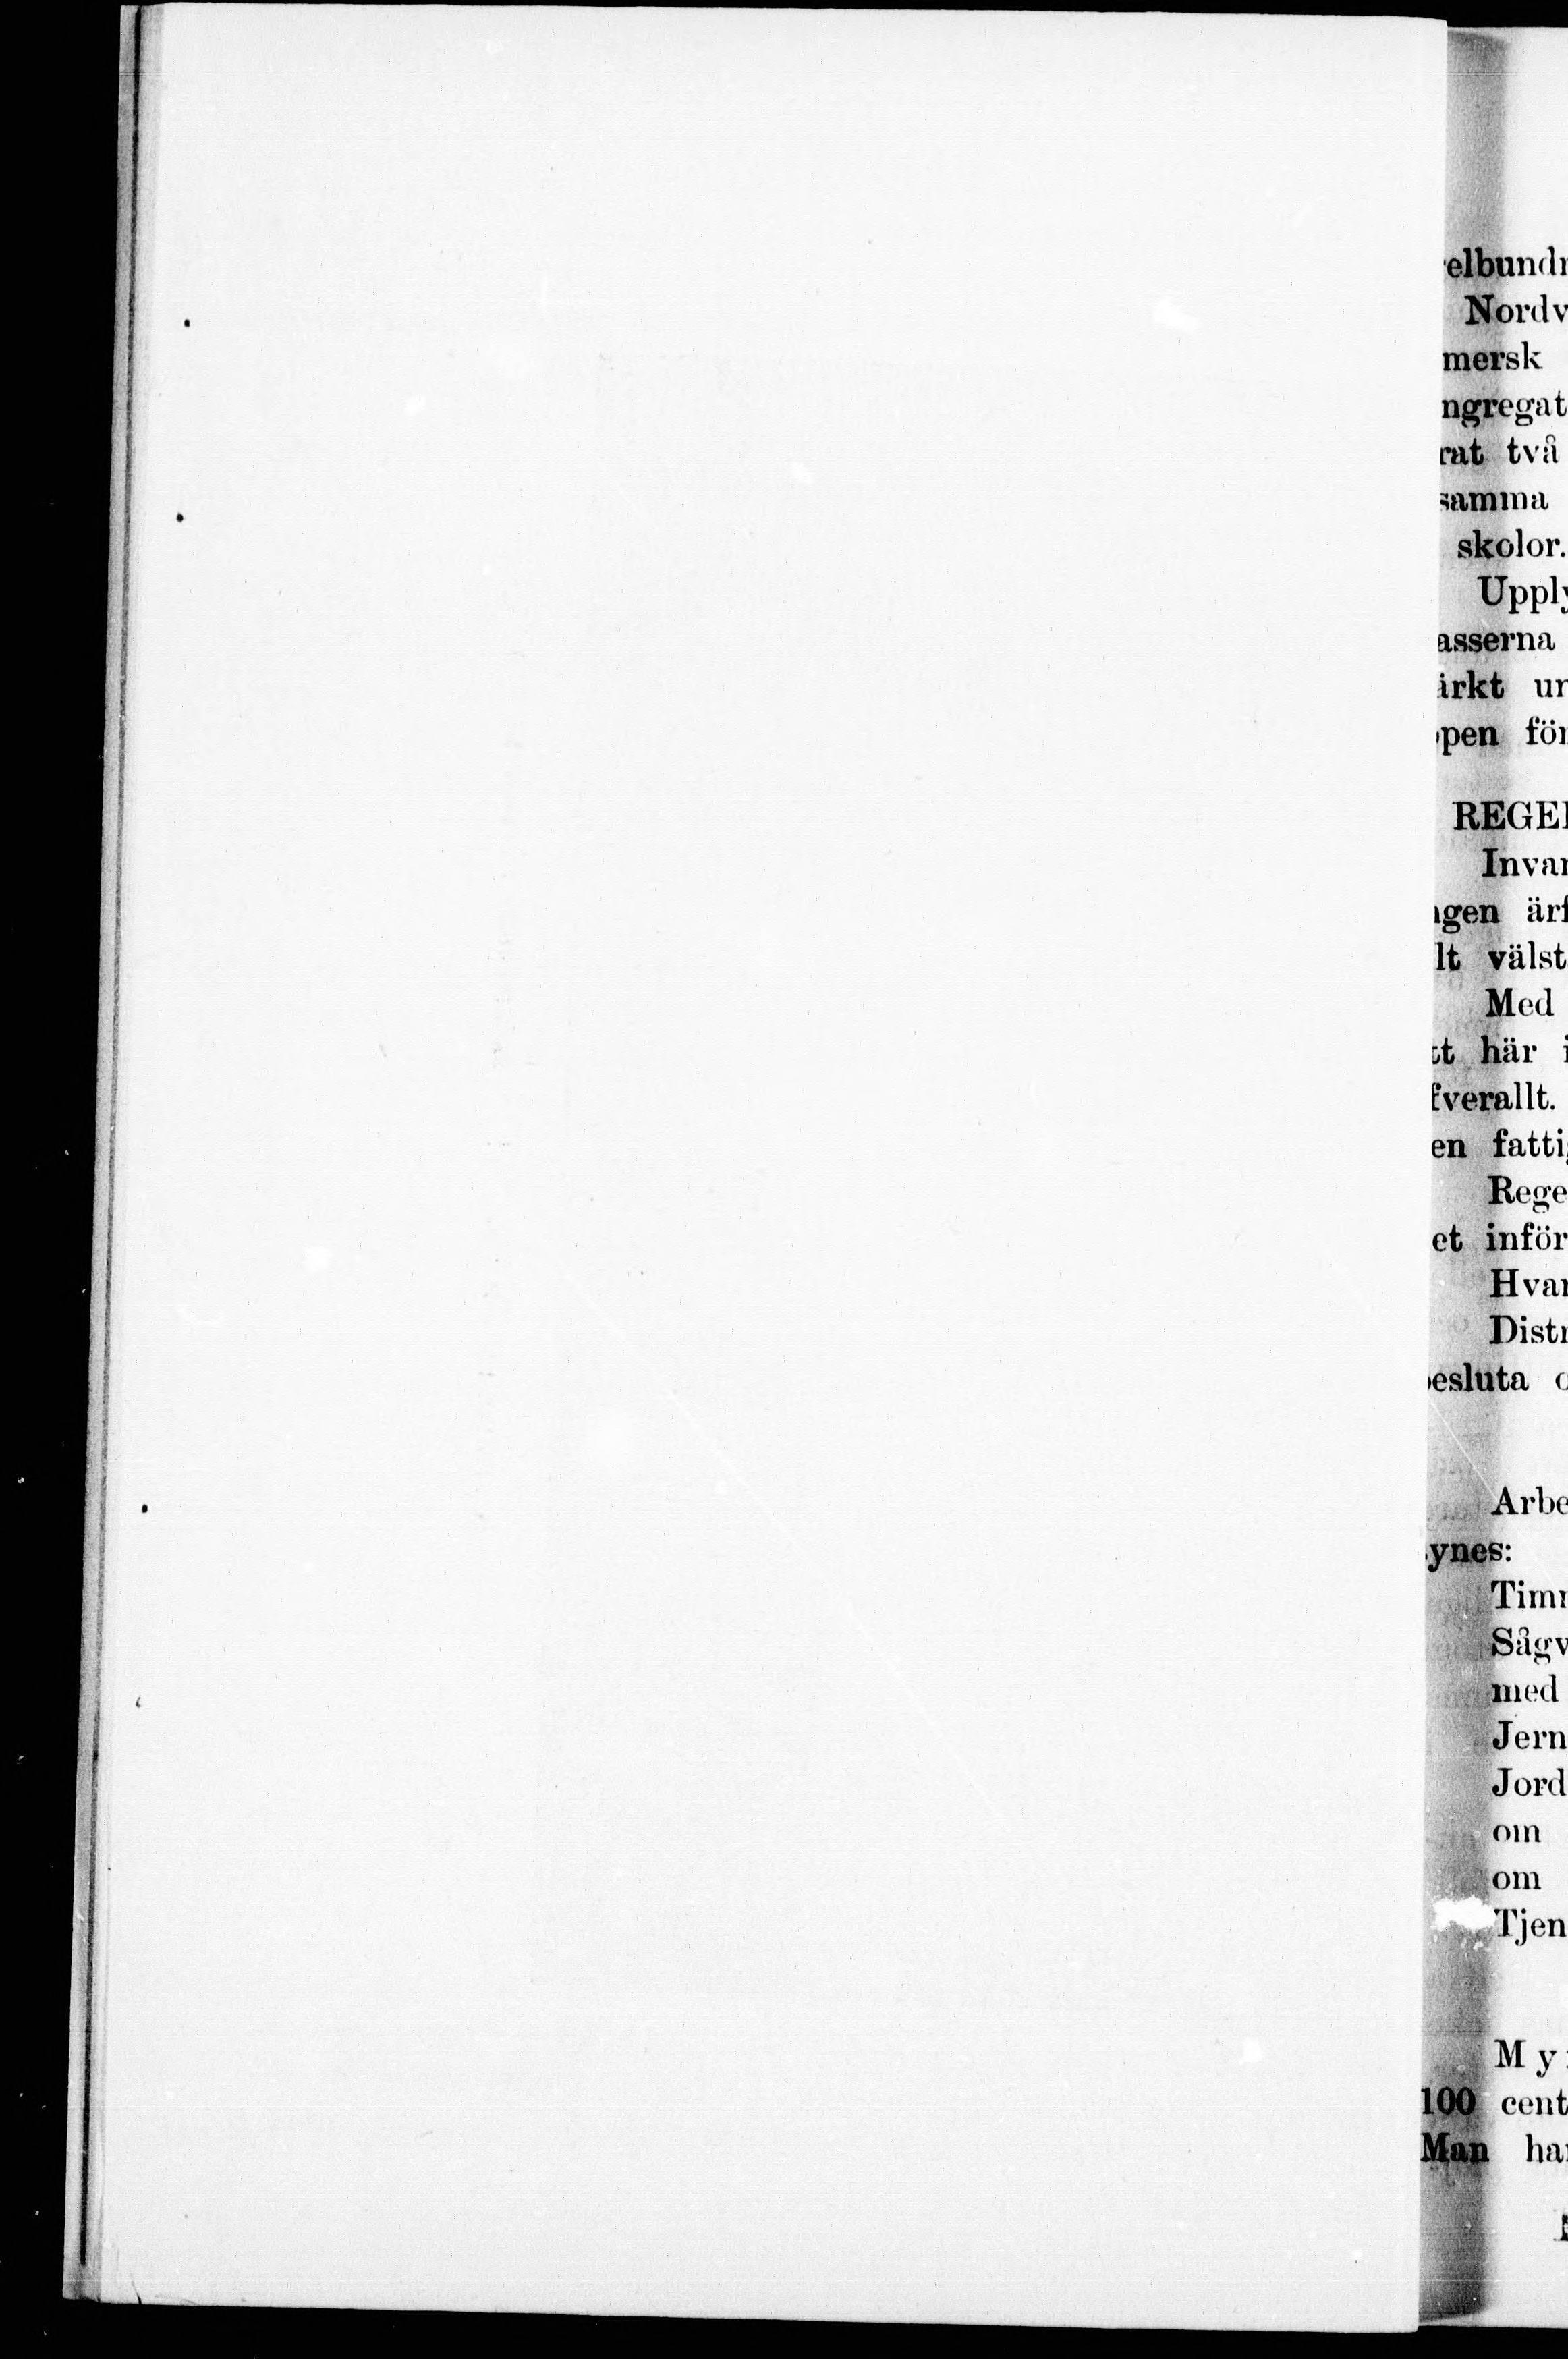 elbund
Nordv
mersk
ngregat
rat två
samma
skolor.
Uppl
asserna
ärkt
pen för
REGE
Inva
gen ärf
lt välst
Med
tt här i
fverallt.
en fatti
Rege
et inför
Hva
Dist
esluta
Arbe
ynes:
Tim
Sågv
med
Jern
Jord
om
om
Tjen
My
100 cent
Man ha